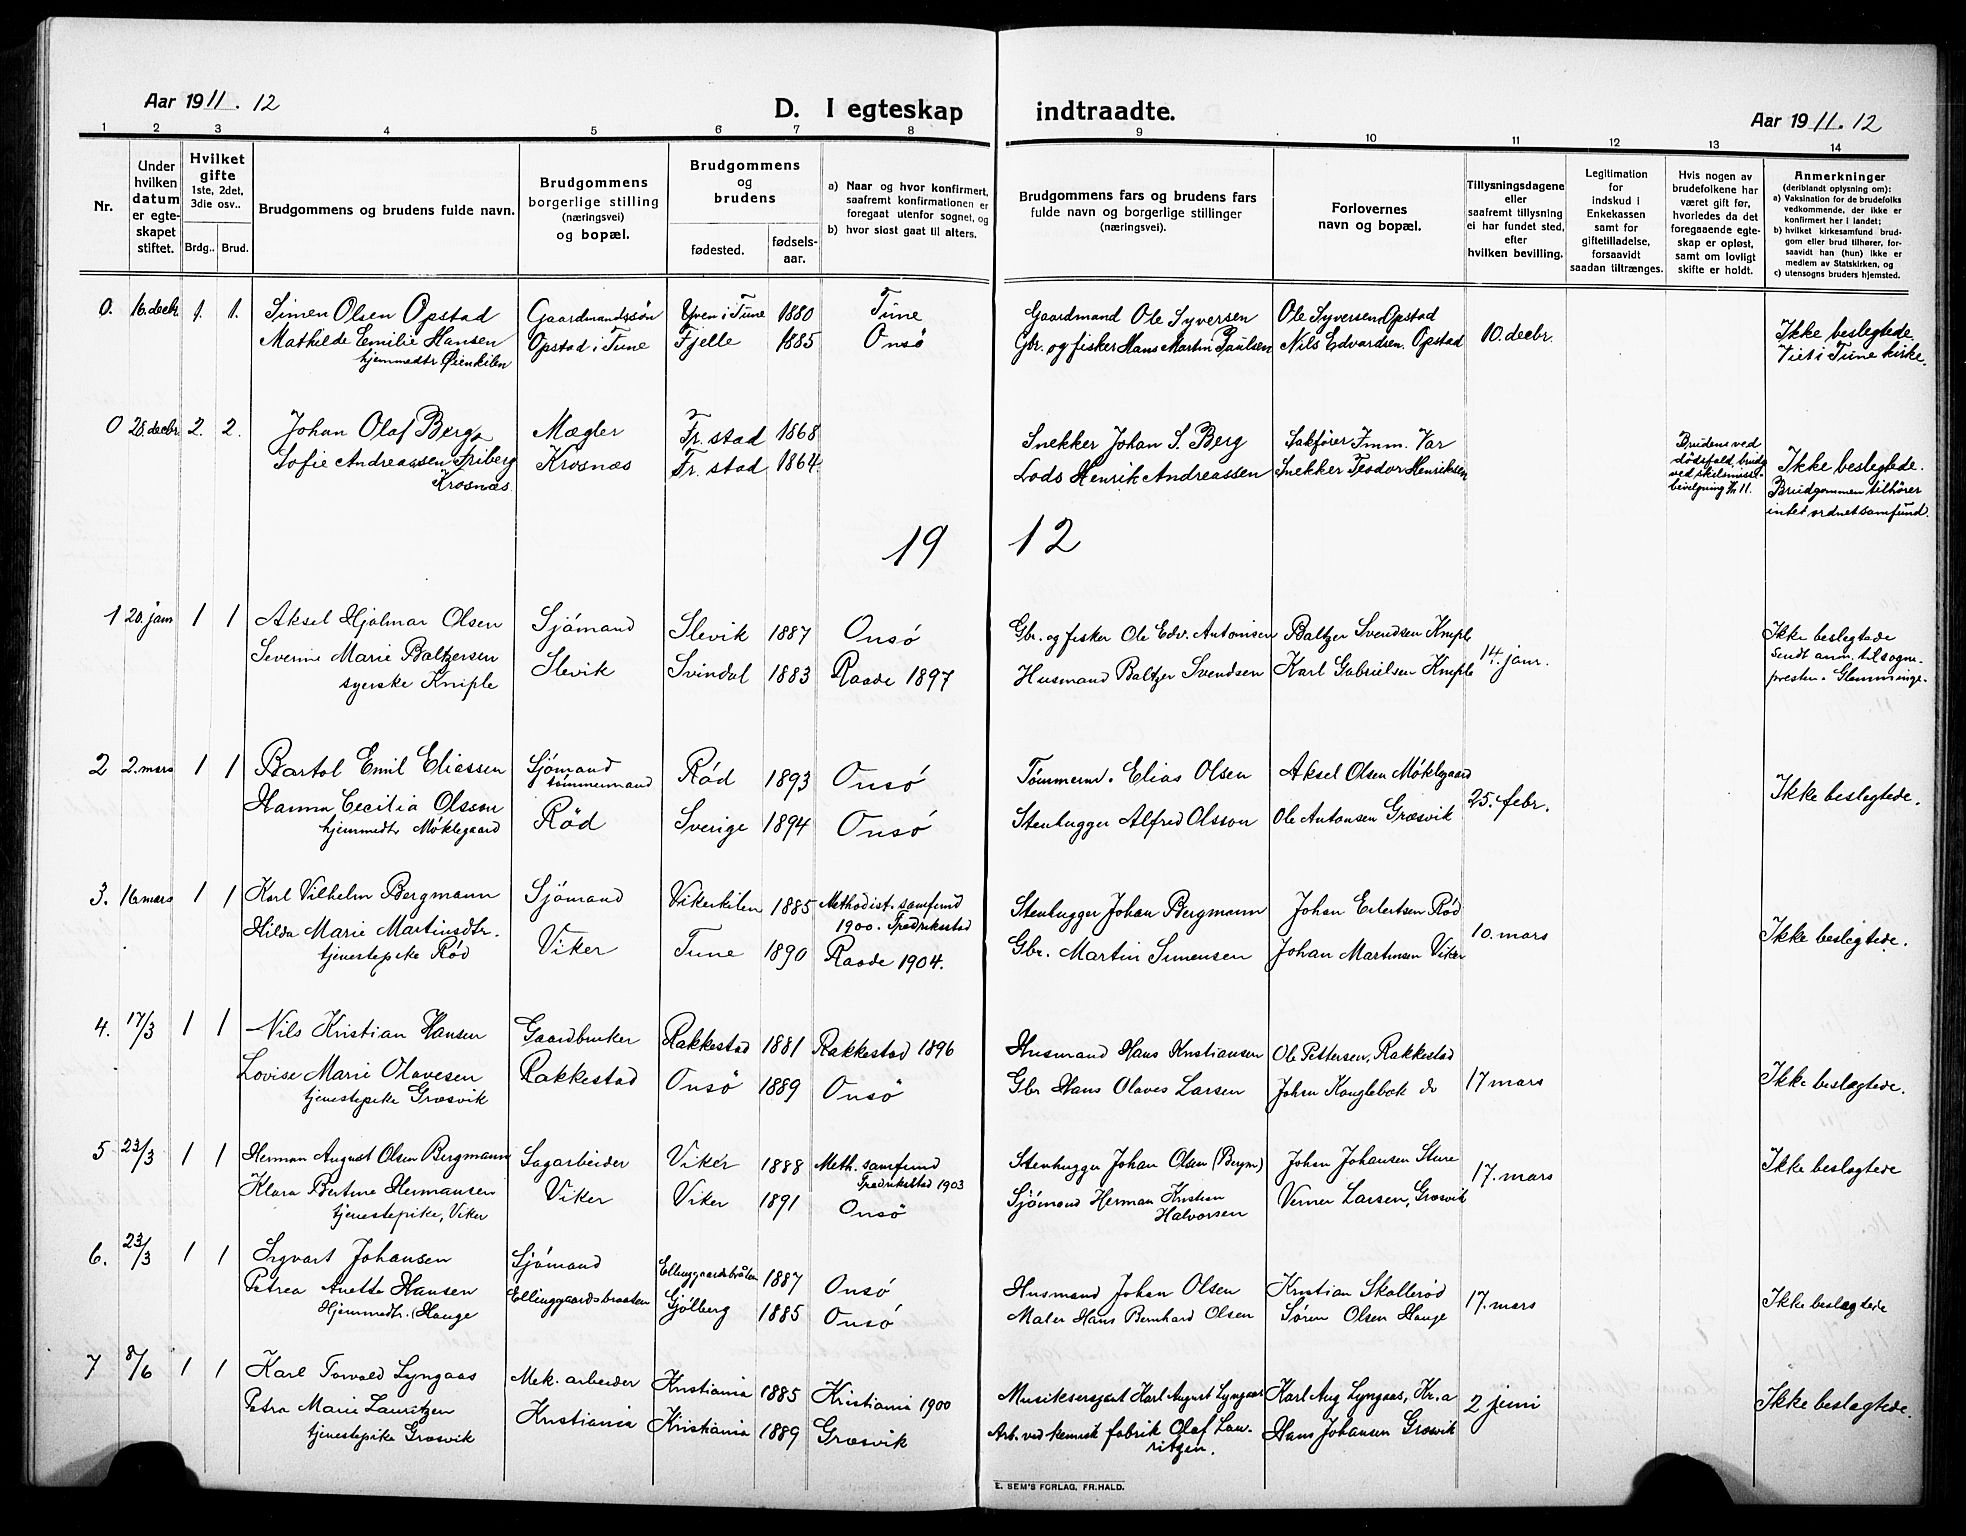 Aar 1911. 12
D. I egteskap indtraadte.
Aar 1911. 12
1 2 3 4 5 6 7 8 9 10 11 12 13 14
Nr.
Under hvilken datum er egte-skapet stiftet.
Hvilket gifte
1ste, 2det, 3die osv..
Brdg.. Brud.
Brudgommens og brudens fulde navn.
Brudgommens borgerlige stilling (næringsvei) og bopæl.
Brudgommens og brudens
fødested. fødsels-aar.
a) Naar og hvor konfirmert, saafremt konfirmationen er foregaat utenfor sognet, og
b) hvor sidst gaat til alters.
Brudgommens fars og brudens fars
fulde navn og borgerlige stillinger
(næringsvei).
Forlovernes
navn og bopæl.
Tillysningsdagene
eller
saafremt tillysning
ei har fundet sted,
efter
hvilken bevilling.
Legitimation
for
indskud i
Enkekassen
samt for
giftetilladelse,
forsaavidt
saadan tiltrænges.
Hvis nogen av
brudefolkene har
været gift før,
hvorledes da det
foregaaende egte-
skap er opløst,
samt om lovligt
skifte er holdt.
Anmerkninger
(deriblandt oplysning om):
a) Vaksination for de brudefolks
vedkommende, der ikke er
konfirmert her i landet;
b) hvilket kirkesamfund brud-
gom eller brud tilhører, for-
saavidt han (hun) ikke er
medlem av Statskirken, og
c) utensogns bruders hjemsted.
0. 16. decbr. 1. 1. Simen Olsen Opstad Gaardmandssön Yven i Tune 1880 Tune Gaardmand Ole Syversen Ole Syversen Opstad 10. decbr. Ikke beslegtede.
Mathilde Emilie Hansen Opstad i Tune Fjelle 1885 Onsö Gbr. og fisker Hans Martin Paulsen Nils Edvardsen. Opstad Viet i Tune kirke.
hjemmedtr Øienkilen
0 28. decbr. 2. 2. Johan Olaf Berg Mægler Fr. stad 1868 Snekker Johan S. Berg Sakfører Imm. Var
Sofie Andreassen Friberg Krosnæs Fr. stad 1864 Lods Henrik Andreassen Snekker Teodor Henriksen
Krosnæs.
Brudens ved dødsfald, brudg. ved skilsmisse-
Ikke beslegtede.
Brudgommen tilhører
intet ordnet samfund.
19 12
1 20. jan 1 1 Aksel Hjalmar Olsen Sjömand Slevik 1887 Onsö Gbr. og fisker Ole Edv. Antonisen Baltzer Svendsen Kniple 14. janr. Ikke beslegtede
Severine Marie Baltzersen Slevik Svindal 1883 Raade 1897 Husmand Baltzer Svendsen Karl Gabrielsen Kniple Sendt anm. til sogne-
syerske Kniple presten. Glemminge.
2 2. mars 1 1 Bartol Emil Eliassen Sjömand tömmermand Rød 1893 Onsö Tømmerm. Elias Olsen Aksel Olsen Møklegaard 25. febr. Ikke beslegtede.
Hanna Cecilia Olsson Rød Sverige 1894 Onsö Stenhugger Alfred Olsson Ole Antonsen Græsvik
hjemmedtr Møklegaard
3. 16 mars 1 1 Karl Vilhelm Bergmann Sjömand Vikerkilen 1885 Methodist. samfund 1900. Fredriksstad Stenhugger Johan Bergmann Johan Eilertsen Rød 10. mars Ikke beslegtede.
Hilda Marie Martinsdtr. Viker Tune 1890 Raade 1904. Gbr. Martin Simensen Johan Martinsen Viker
tjenestepike Rød
4. 17/3 1 1 Nils Kristian Hansen Gaardbruker Rakkestad 1881 Rakkestad 1896 Husmand Hans Kristiansen Ole Pettersen, Rakkestad 17 mars Ikke beslægtede.
Lovise Marie Olavesen Rakkestad Onsö 1889 Onsö Gbr Hans Olaves Larsen Johan Kanglebæk do
tjenestepike Græsvik
5 23/3 1 1 Herman August Olsen Bergmann Sagarbeider Viker 1888 Meth. samfund Fredrikstad 1903 Stenhugger Johan Olsen (Bergm) Johan Johansen Sture 17. mars Ikke beslegtede
Klara Bertine Hermansen Viker Viker 1891 Onsö Sjömand Herman Kristian Halvorsen Verner Larsen, Græsvik
tjenestepike, Viker
6. 23/3 1 1 Sigvart Johansen Sjömand Ellinggaardsbråten 1887 Onsö Husmand Johan Olsen Kristian Skallerød 17. mars Ikke beslægtede
Petrea Anette Hansen Ellinggaardsbraaten Gjølberg 1885 Onsö Maler Hans Bernhard Olsen Søren Olsen Hauge
Hjemmedtr. Hauge
7 8/6 1 1 Karl Torvald Lyngaas Mek. arbeider Kristiania 1885 Kristiania 1900 Musiksersjant Karl August Lyngaas Karl Aug Lyngaas, Kr.a 2 juni Ikke beslegtede.
Petra Marie Lauritzen Kristiania Kristiania 1889 Græsvik Arb. ved kemisk fabrik Olaf Lau-ritzen. Hans Johansen Græsvik
tjenestepike Græsvik
E. SEM'S FORLAG, FR.HALD.